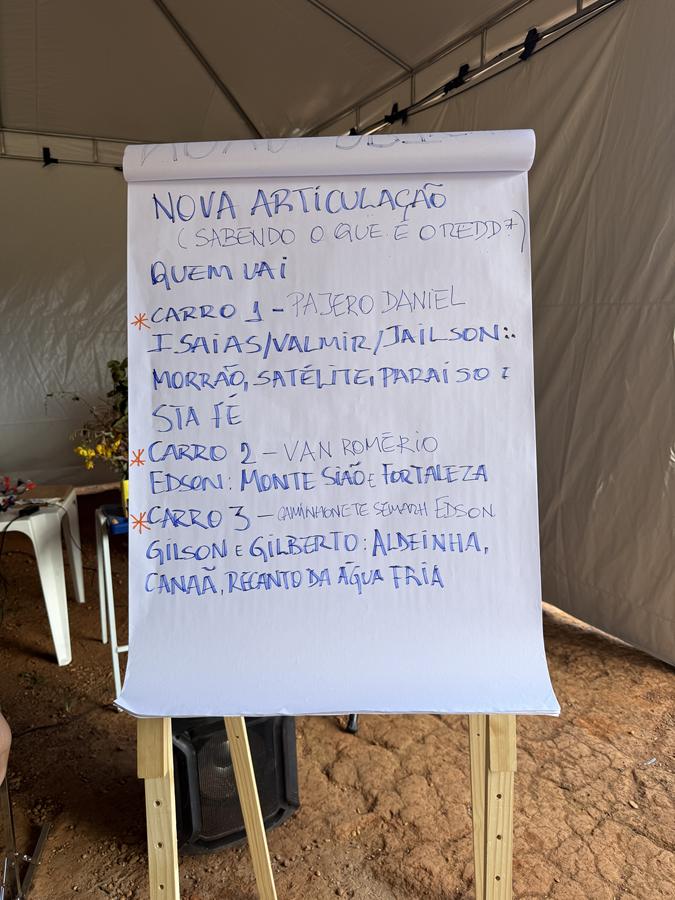 NOVA ARTICULAÇÃO
(SABENDO O QUE É O REDD+)
QUEM VAI
* CARRO 1 - PAJERO DANIEL
ISAIAS/VALMIR/JAILSON:
MORRÃO, SATÉLITE, PARAISO E
STA FÉ
* CARRO 2 - VAN ROMÉRIO
EDSON: MONTE SIÃO E FORTALEZA
* CARRO 3 - CAMINHONETE SEMARH EDSON
GILSON E GILBERTO: ALDEINHA,
CANAÃ, RECANTO DA ÁGUA FRIA